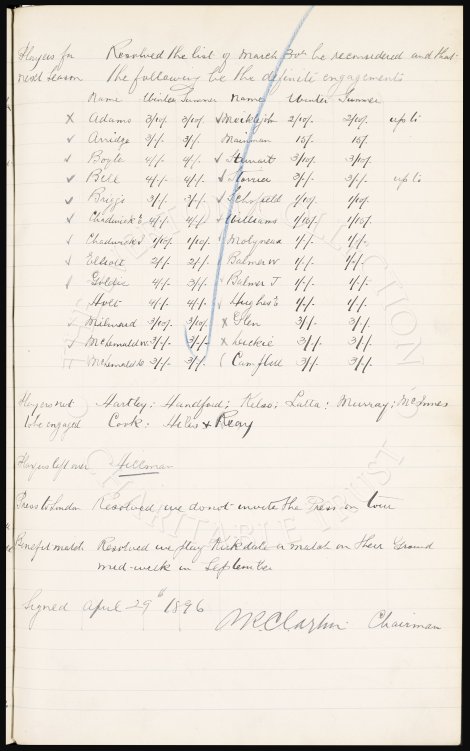 Players for Resolved the list of March 30th be reconsidered and that
next season the following be the definite engagements
Name Winter Summer Name Winter Summer
x Adams 3/10/- 3/10/- Meiklejohn 2/10/- 2/10/- up to
Arridge 3/-/- 3/-/- Mainman 15/- 15/-
Boyle 4/-/- 4/-/- Stewart 3/10/- 3/10/-
Bell 4/-/- 4/-/- Storrier 3/-/- 3/-/- up to
Briggs 3/-/- Schofield 1/10/- 1/10/-
Chadwick E 4/-/- 4/-/- Williams 1/15/- 1/15/-
Chadwick 1/10/- 1/10/- Molyneux 1/-/- 1/-/-
Elliott 2/-/- 2/-/- Balmer W 1/-/- 1/-/-
Goldie 4/-/- 3/-/- Balmer J 1/-/- 1/-/-
Holt 4/-/- 4/-/- Hughes E 1/-/- 1/-/-
Milward 3/10/- 3/10/- x Glen 3/-/- 3/-/-
McDonald 3/-/- 3/-/- x Dickie 3/-/- 3/-/-
McDonald 3/-/- 3/-/- Campbell 3/-/- 3/-/-
Players not Hartley; Handford; Kelso; Latta; Murray; McInnes
to be engaged Cook; Hiles & Reay
Players left over Hillman
Press to London Resolved we do not invite the Press on tour
Benefit match Resolved we play Kirkdale a match on their Ground
mid-week in September
Signed April 29th 1896
Chairman
EVERTON COLLECTION CHARITABLE TRUST